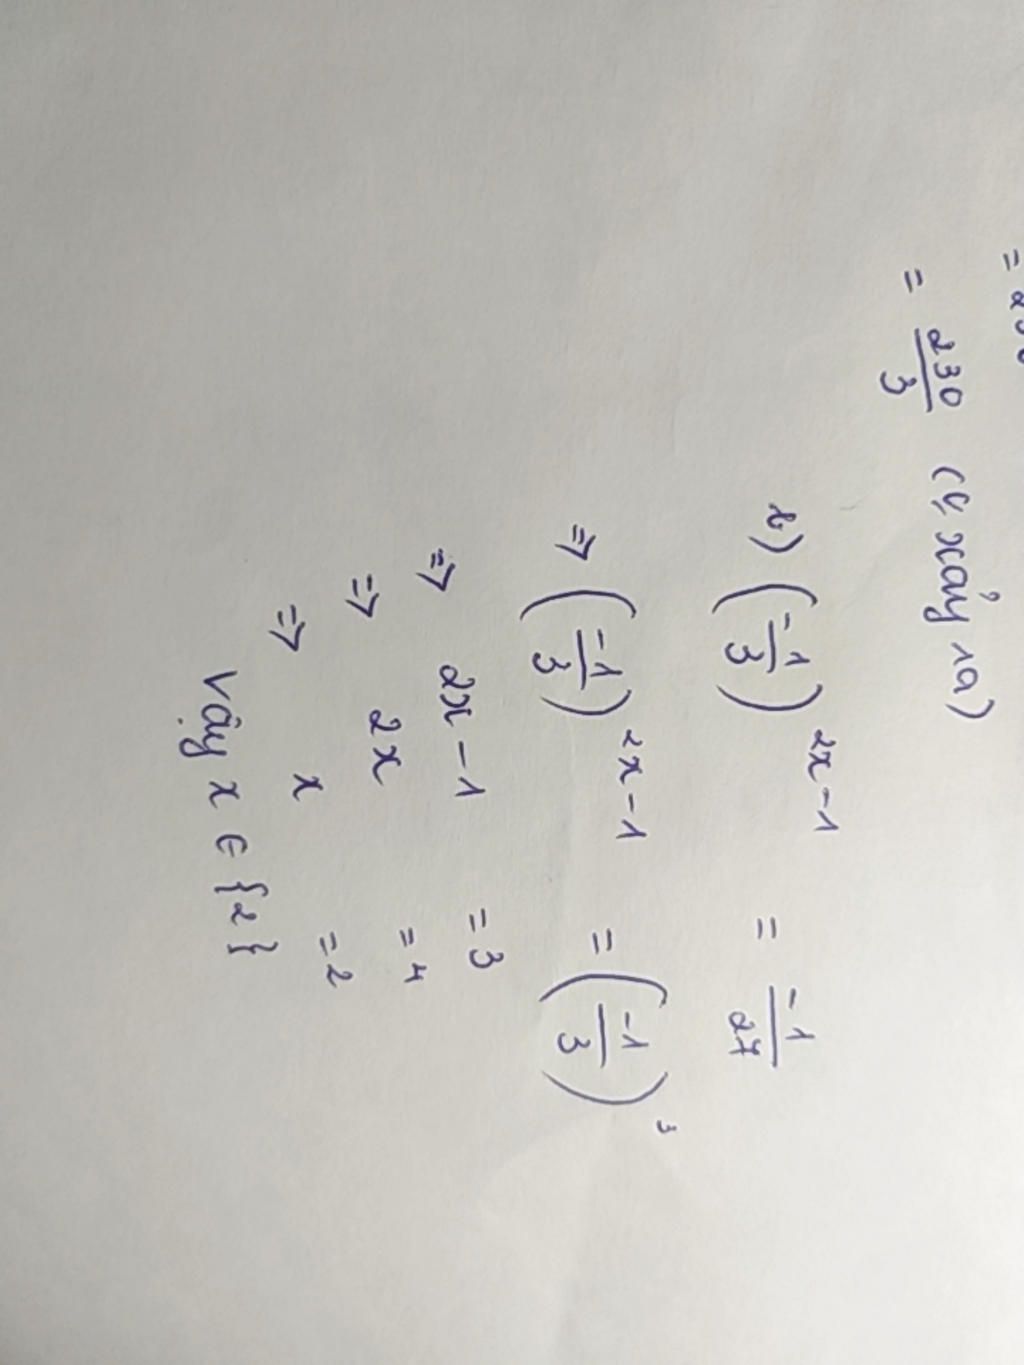 =
= 230/3 (xảy ra)
b) (-1/3)^2x-1 = -1/27
=> (-1/3)^2x-1 = (-1/3)^3
=> 2x-1 = 3
=> 2x = 4
=> x = 2
Vậy x ∈ {2}